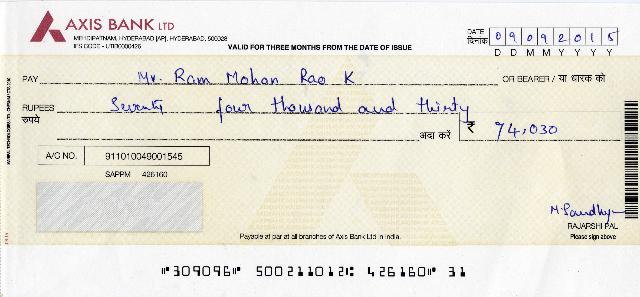 AXIS BANK LTD
MEHDIPATNAM, HYDERABAD [AP], HYDERABAD, 500028
IFS CODE - UTIB0000426
VALID FOR THREE MONTHS FROM THE DATE OF ISSUE
DATE दिनांक 09092015
D D M M Y Y Y Y
PAY Mr. Ram Mohan Rao K OR BEARER / या धारक को
RUPEES Seventy four thousand and thirty
रुपये अदा करें ₹ 74,030
A/C NO. 911010049001545
SAPPM 426160
M. Sandhya
RAJARSHI PAL
Payable at par at all branches of Axis Bank Ltd in India.
Please sign above
"309096" 500211012: 426160" 31